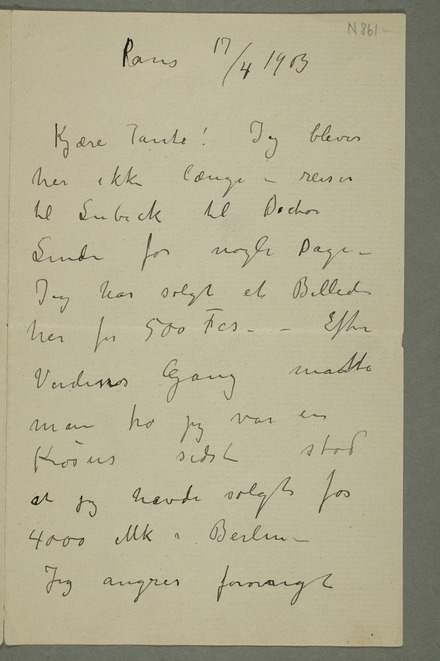 N 861-
Paris 17/4 1903
Kjære Tante! Jeg bliver
her ikke længe – reiser
til Lübeck til Doctor
Linde for nogle Dage –
Jeg har solgt et Billede
her for 500 Fcs – – Efter
Verdens Gang maatte
man tro jeg var en
Krøsus sidst stod
at jeg havde solgt for
4000 Mk i Berlin –
Jeg angrer forøvrigt